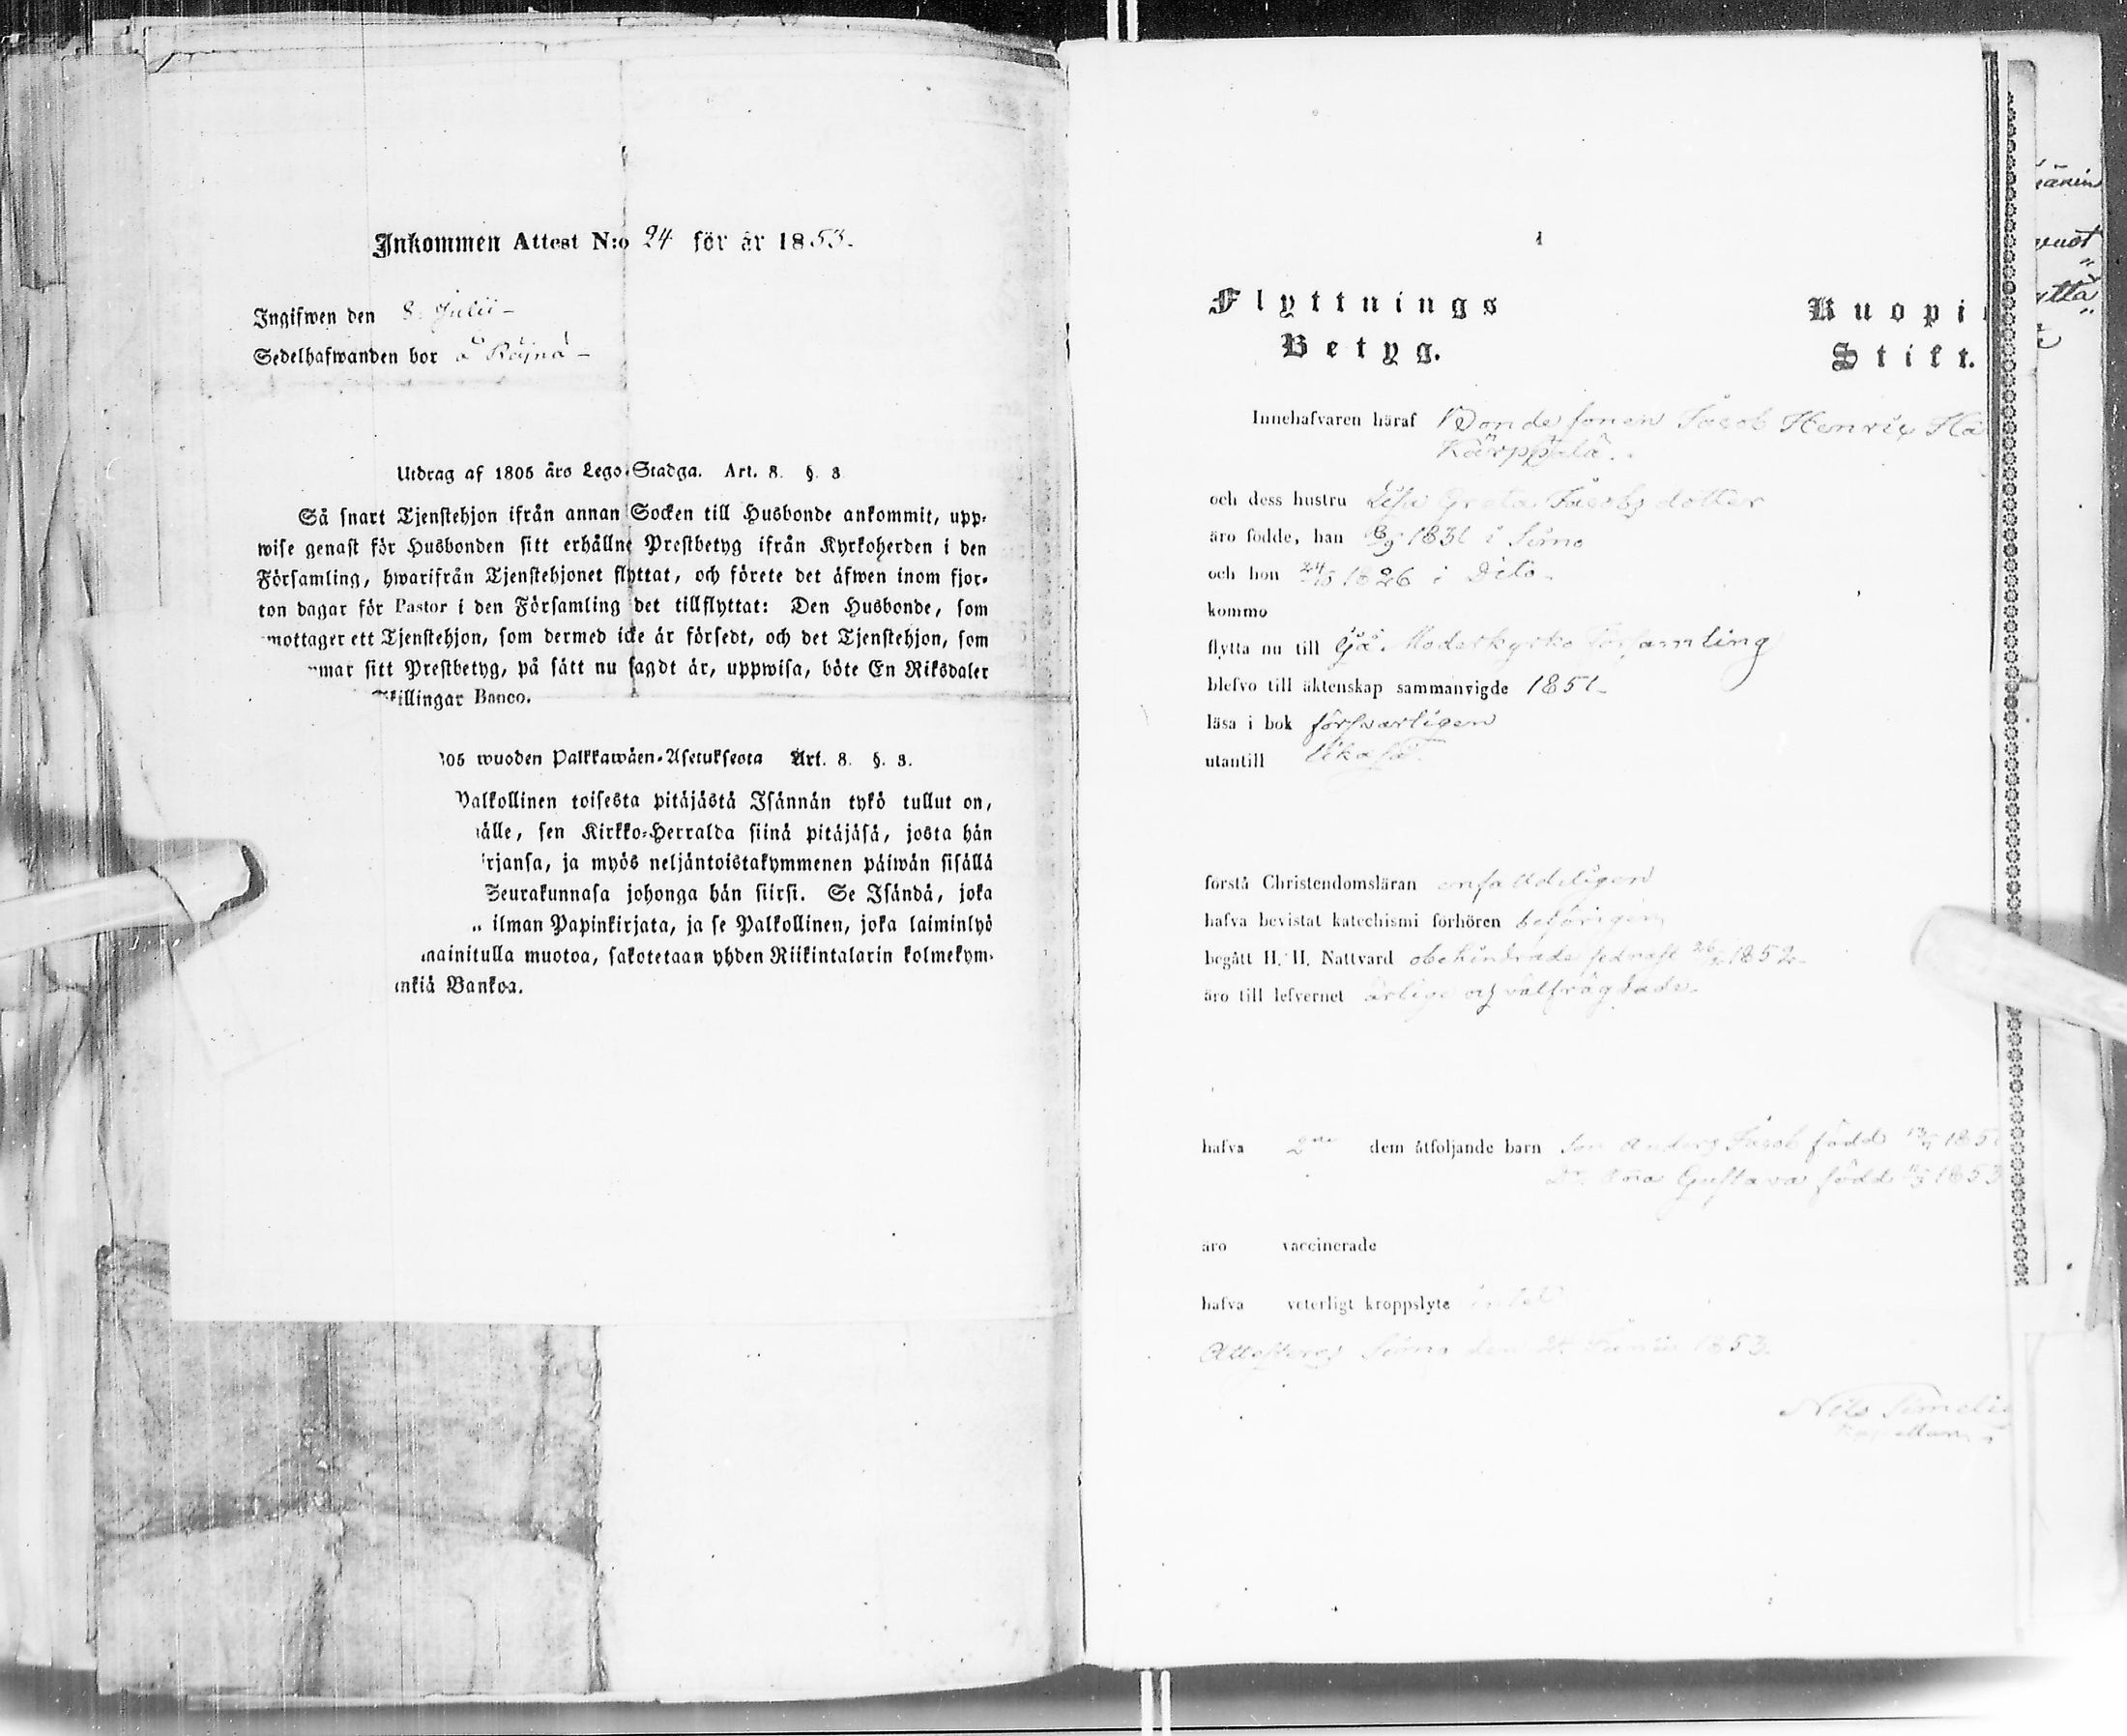 Inkommen Attest N:o 24 för år 1853.
Ingifwen den 8. Julii -
Sedelhafwanden bor å Röynä -
Utdrag af 1805 års Lego-Stadga. Art. 8. §. 3
Så snart Tjenstehjon ifrån annan Socken till Husbonde ankommit, upp-
wise genast för Husbonden sitt erhållne Prestbetyg ifrån Kyrkoherden i den
Församling, hwarifrån Tjenstehjonet flyttat, och förete det äfwen inom fjor-
ton dagar för Pastor i den Församling det tillflyttat: Den Husbonde, som
mottager ett Tjenstehjon, som dermed icke är försedt, och det Tjenstehjon, som
mar sitt Prestbetyg, på sätt nu sagdt är, uppwisa, böte En Riksdaler
killingar Banco.
05 wuoden Palkkawäen-Asetuksesta Art. 8. §. 3.
Palkollinen toisesta pitäjästä Isännän tykö tullut on,
älle, sen Kirkko-Herralda siinä pitäjäsä, josta hän
rjansa, ja myös neljäntoistakymmenen päiwän sisällä
Seurakunnasa johonga hän siirsi. Se Isändä, joka
ilman Papinkirjata, ja se Palkollinen, joka laiminlyö
mainitulla muotoa, sakotetaan yhden Riikintalarin kolmekym-
nkiä Bankoa.
Flyttnings Kuopi
Betyg. Stift.
Innehafvaren häraf Bonde sonen Jacob Henric
Kärppälä.
och dess hustru Lisa Greta Jacobsdotter
äro födde, han 8/9 1831 i Simo
och hon 24/10 1826 i Dito.
kommo
flytta nu till Ijå Moderkyrko församling
blefvo till äktenskap sammanvigde 1851
läsa i bok försvarligen
utantill lika så.
förstå Christendomsläran enfaldeligen
hafva bevistat katechismi förhören behörigen
begått H. H. Nattvard obehindrade sednast 1852.
äro till lefvernet ärlige och välfrägdade.
hafva 2ne dem åtföljande barn Son Anders Jacob född
Gustava född 1853
äro vaccinerade
hafva veterligt kroppslyte intet
Attesteras Simo den Junii 1853.
Nils